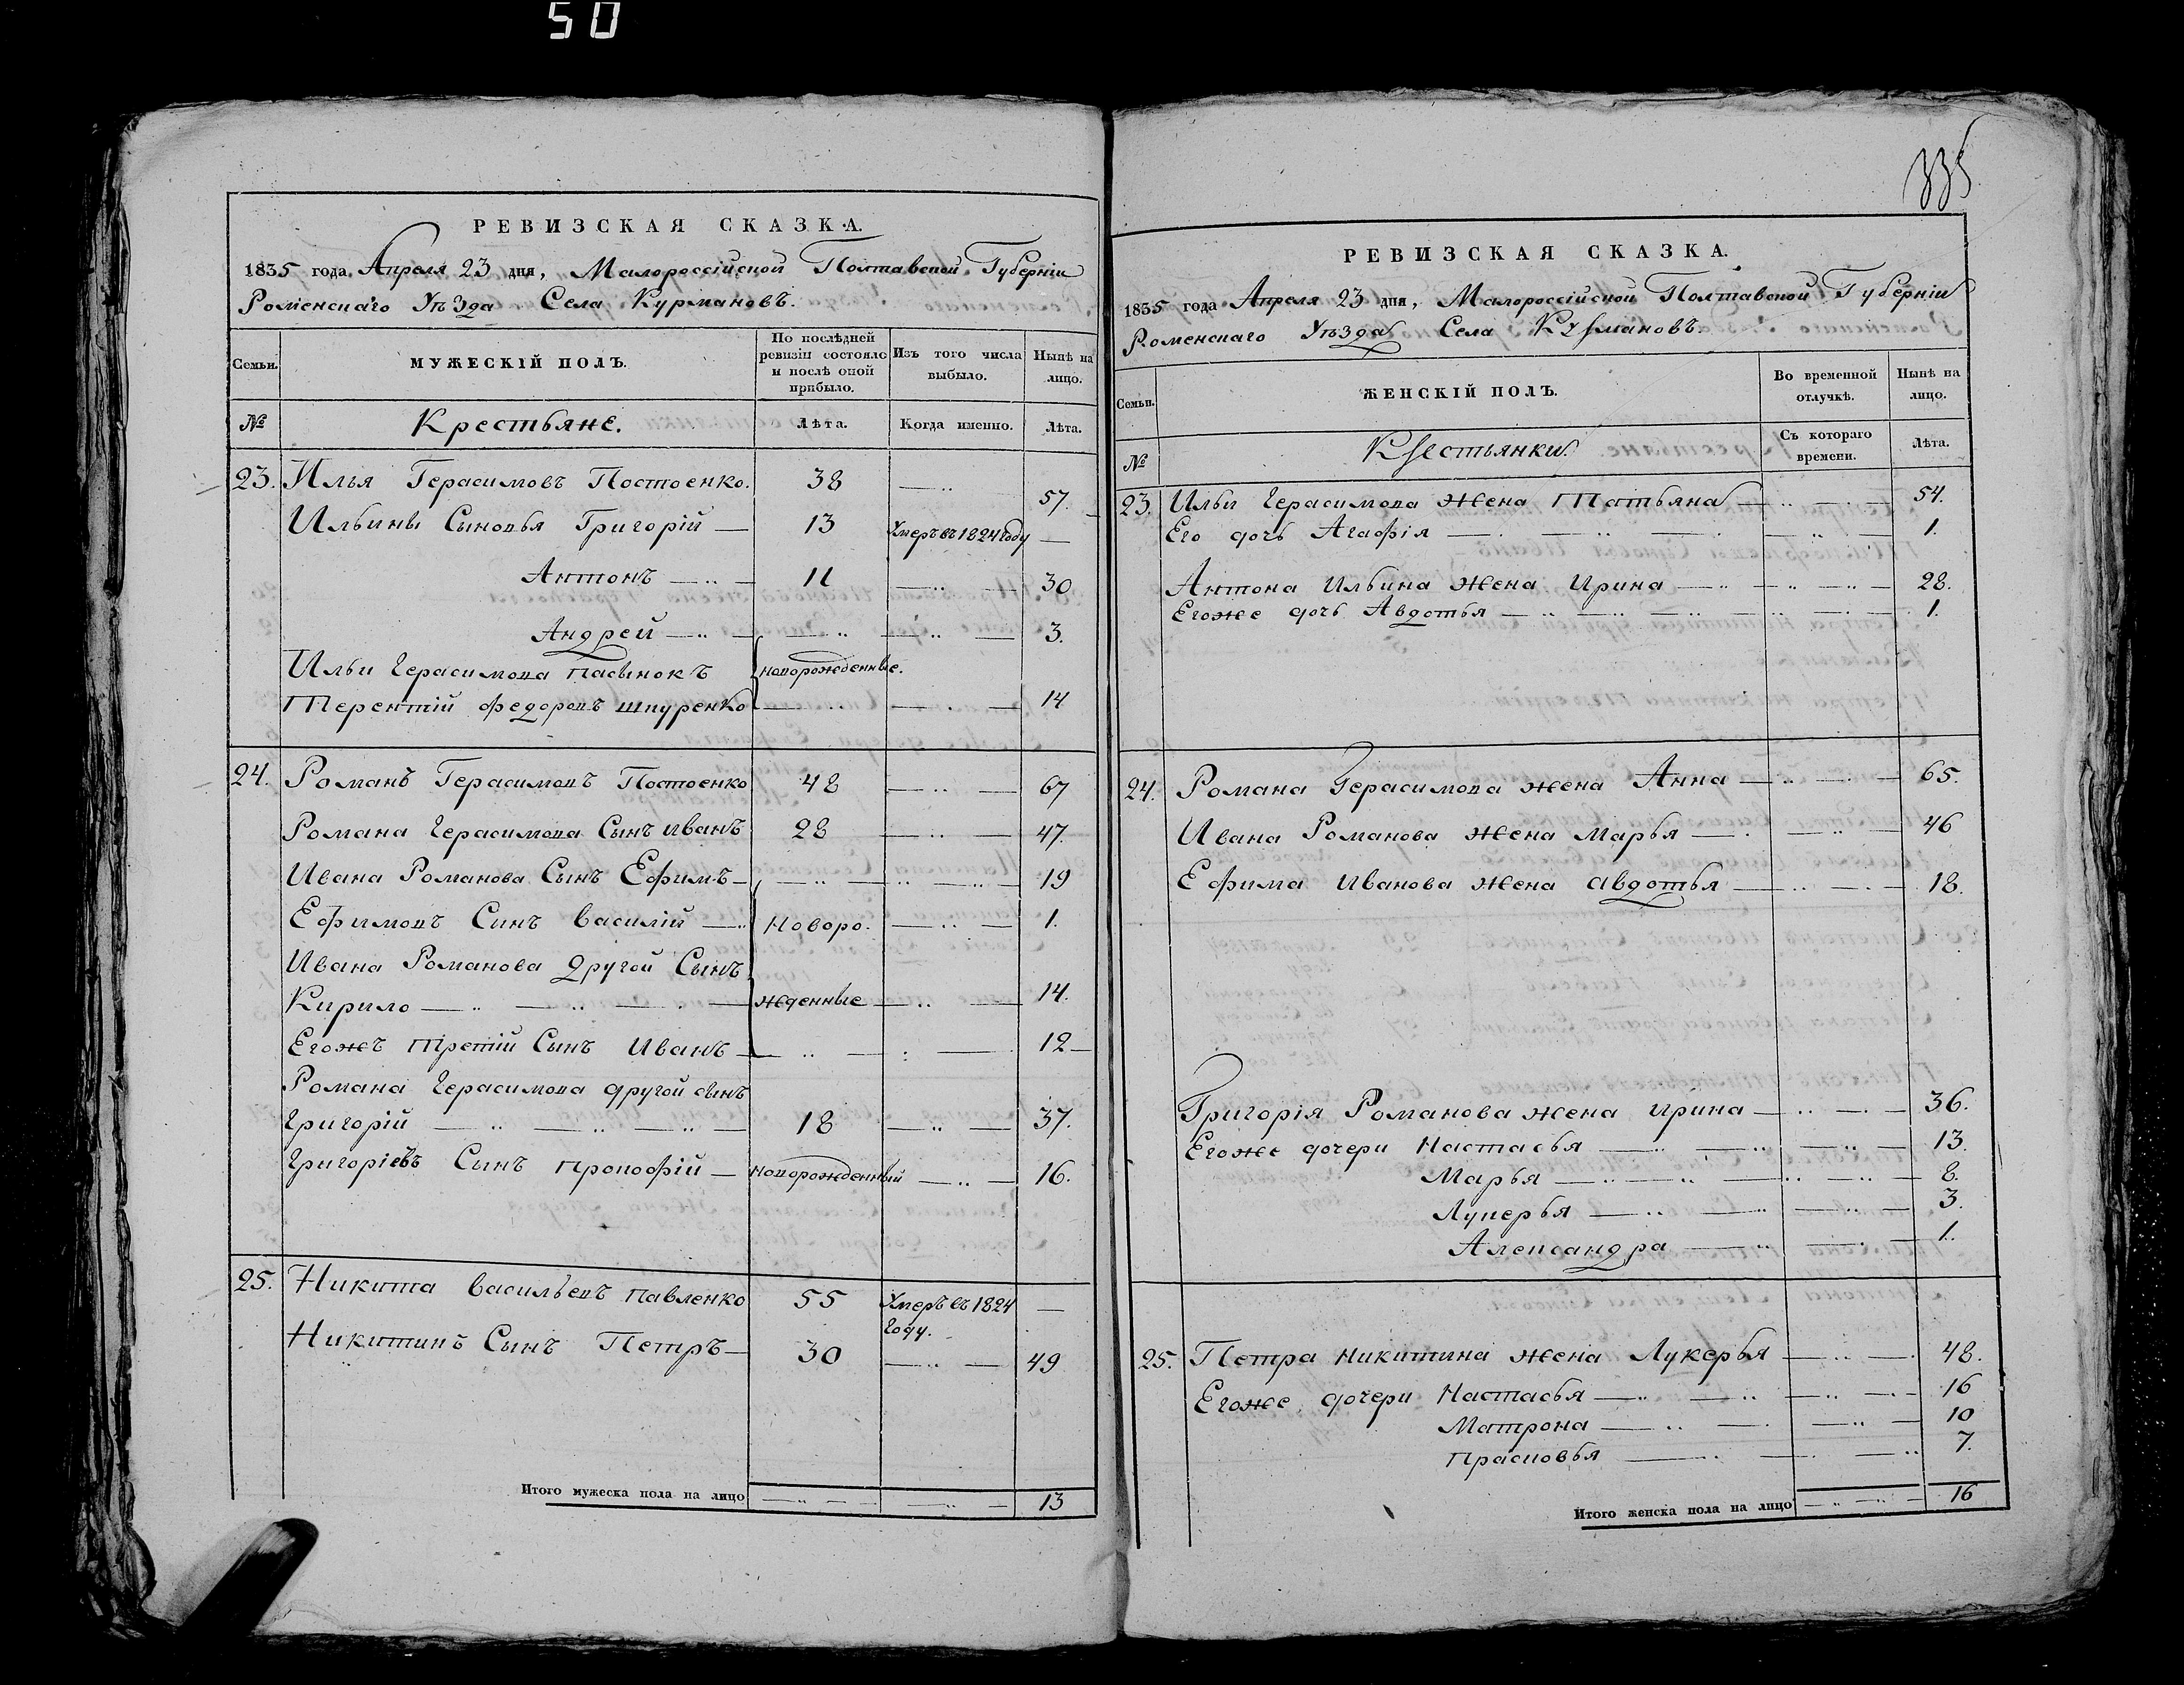 50
РЕВИЗСКАЯ СКАЗКА.
1835 года, Апреля 23 дня, Малороссійской Полтавской Губерніи
Роменскаго Уѣзда Села Курмановъ.
Семьи. МУЖЕСКІЙ ПОЛЪ. По послѣдней ревизіи состояло и послѣ оной прибыло. Изъ того числа выбыло. Нынѣ на лицо.
№ Крестьяне. Лѣта. Когда именно. Лѣта.
23. Илья Герасимовъ Постоенко. 38 57.
Ильины Сыновья Григорій 13 Умеръ въ 1824 году
Антонъ 11 30
Андрей 3.
Ильи Герасимова пасынокъ новорожденные.
Терентій Федоровъ Шпуренко 14
24. Романъ Герасимовъ Постоенко 48 67
Романа Герасимова Сынъ Иванъ 28 47.
Ивана Романова Сынъ Ефимъ 19
Ефимовъ Синъ Василій Новоро- 1.
Ивана Романова другой Сынъ
Кирило жденные 14.
Егожъ третій Сынъ Иванъ 12
Романа Герасимова другой сынъ
Григорій 18 37.
Григоріевъ Сынъ Прокофій новорожденный 16.
25. Никита Васильевъ Павленко 55 Умеръ въ 1824 году.
Никитинъ Сынъ Петръ 30 49
Итого мужеска пола на лицо 13
335
РЕВИЗСКАЯ СКАЗКА.
1835 года Апреля 23 дня, Малороссійской Полтавской Губерніи
Роменскаго Уѣзда Села Курмановъ.
Семьи. ЖЕНСКІЙ ПОЛЪ. Во временной отлучкѣ. Нынѣ на лицо.
№ Крестьянки. Съ котораго времени. Лѣта.
23. Ильи Герасимова жена Татьяна 54.
Его дочь Агафія 1.
Антона Ильина жена Ирина 28.
Егоже дочь Авдотья 1.
24. Романа Герасимова жена Анна 65.
Ивана Романова жена Марья 46
Ефима Иванова жена Авдотья 18.
Григорія Романова жена Ирина 36.
Егоже дочери Настасья 13.
Марья 8.
Лукерья 3.
Александра 1.
25. Петра Никитина жена Лукерья 48.
Егоже дочери Настасья 16
Матрона 10
Прасковья 7.
Итого женска пола на лицо 16